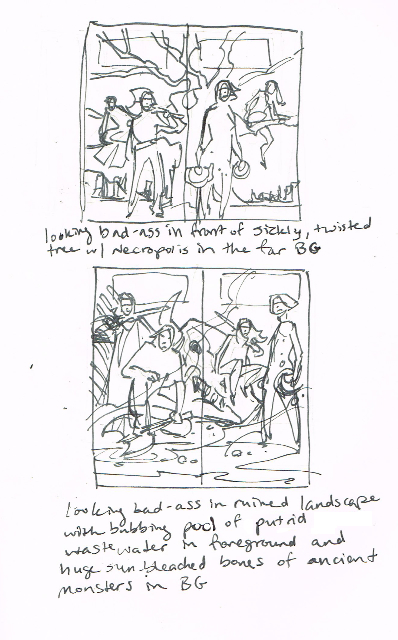 looking bad-ass in front of sickly, twisted
tree w/ Necropolis in the far BG
looking bad-ass in ruined landscape
with bubbing pool of putrid
wastewater in foreground and
huge sun-bleached bones of ancient
monsters in BG